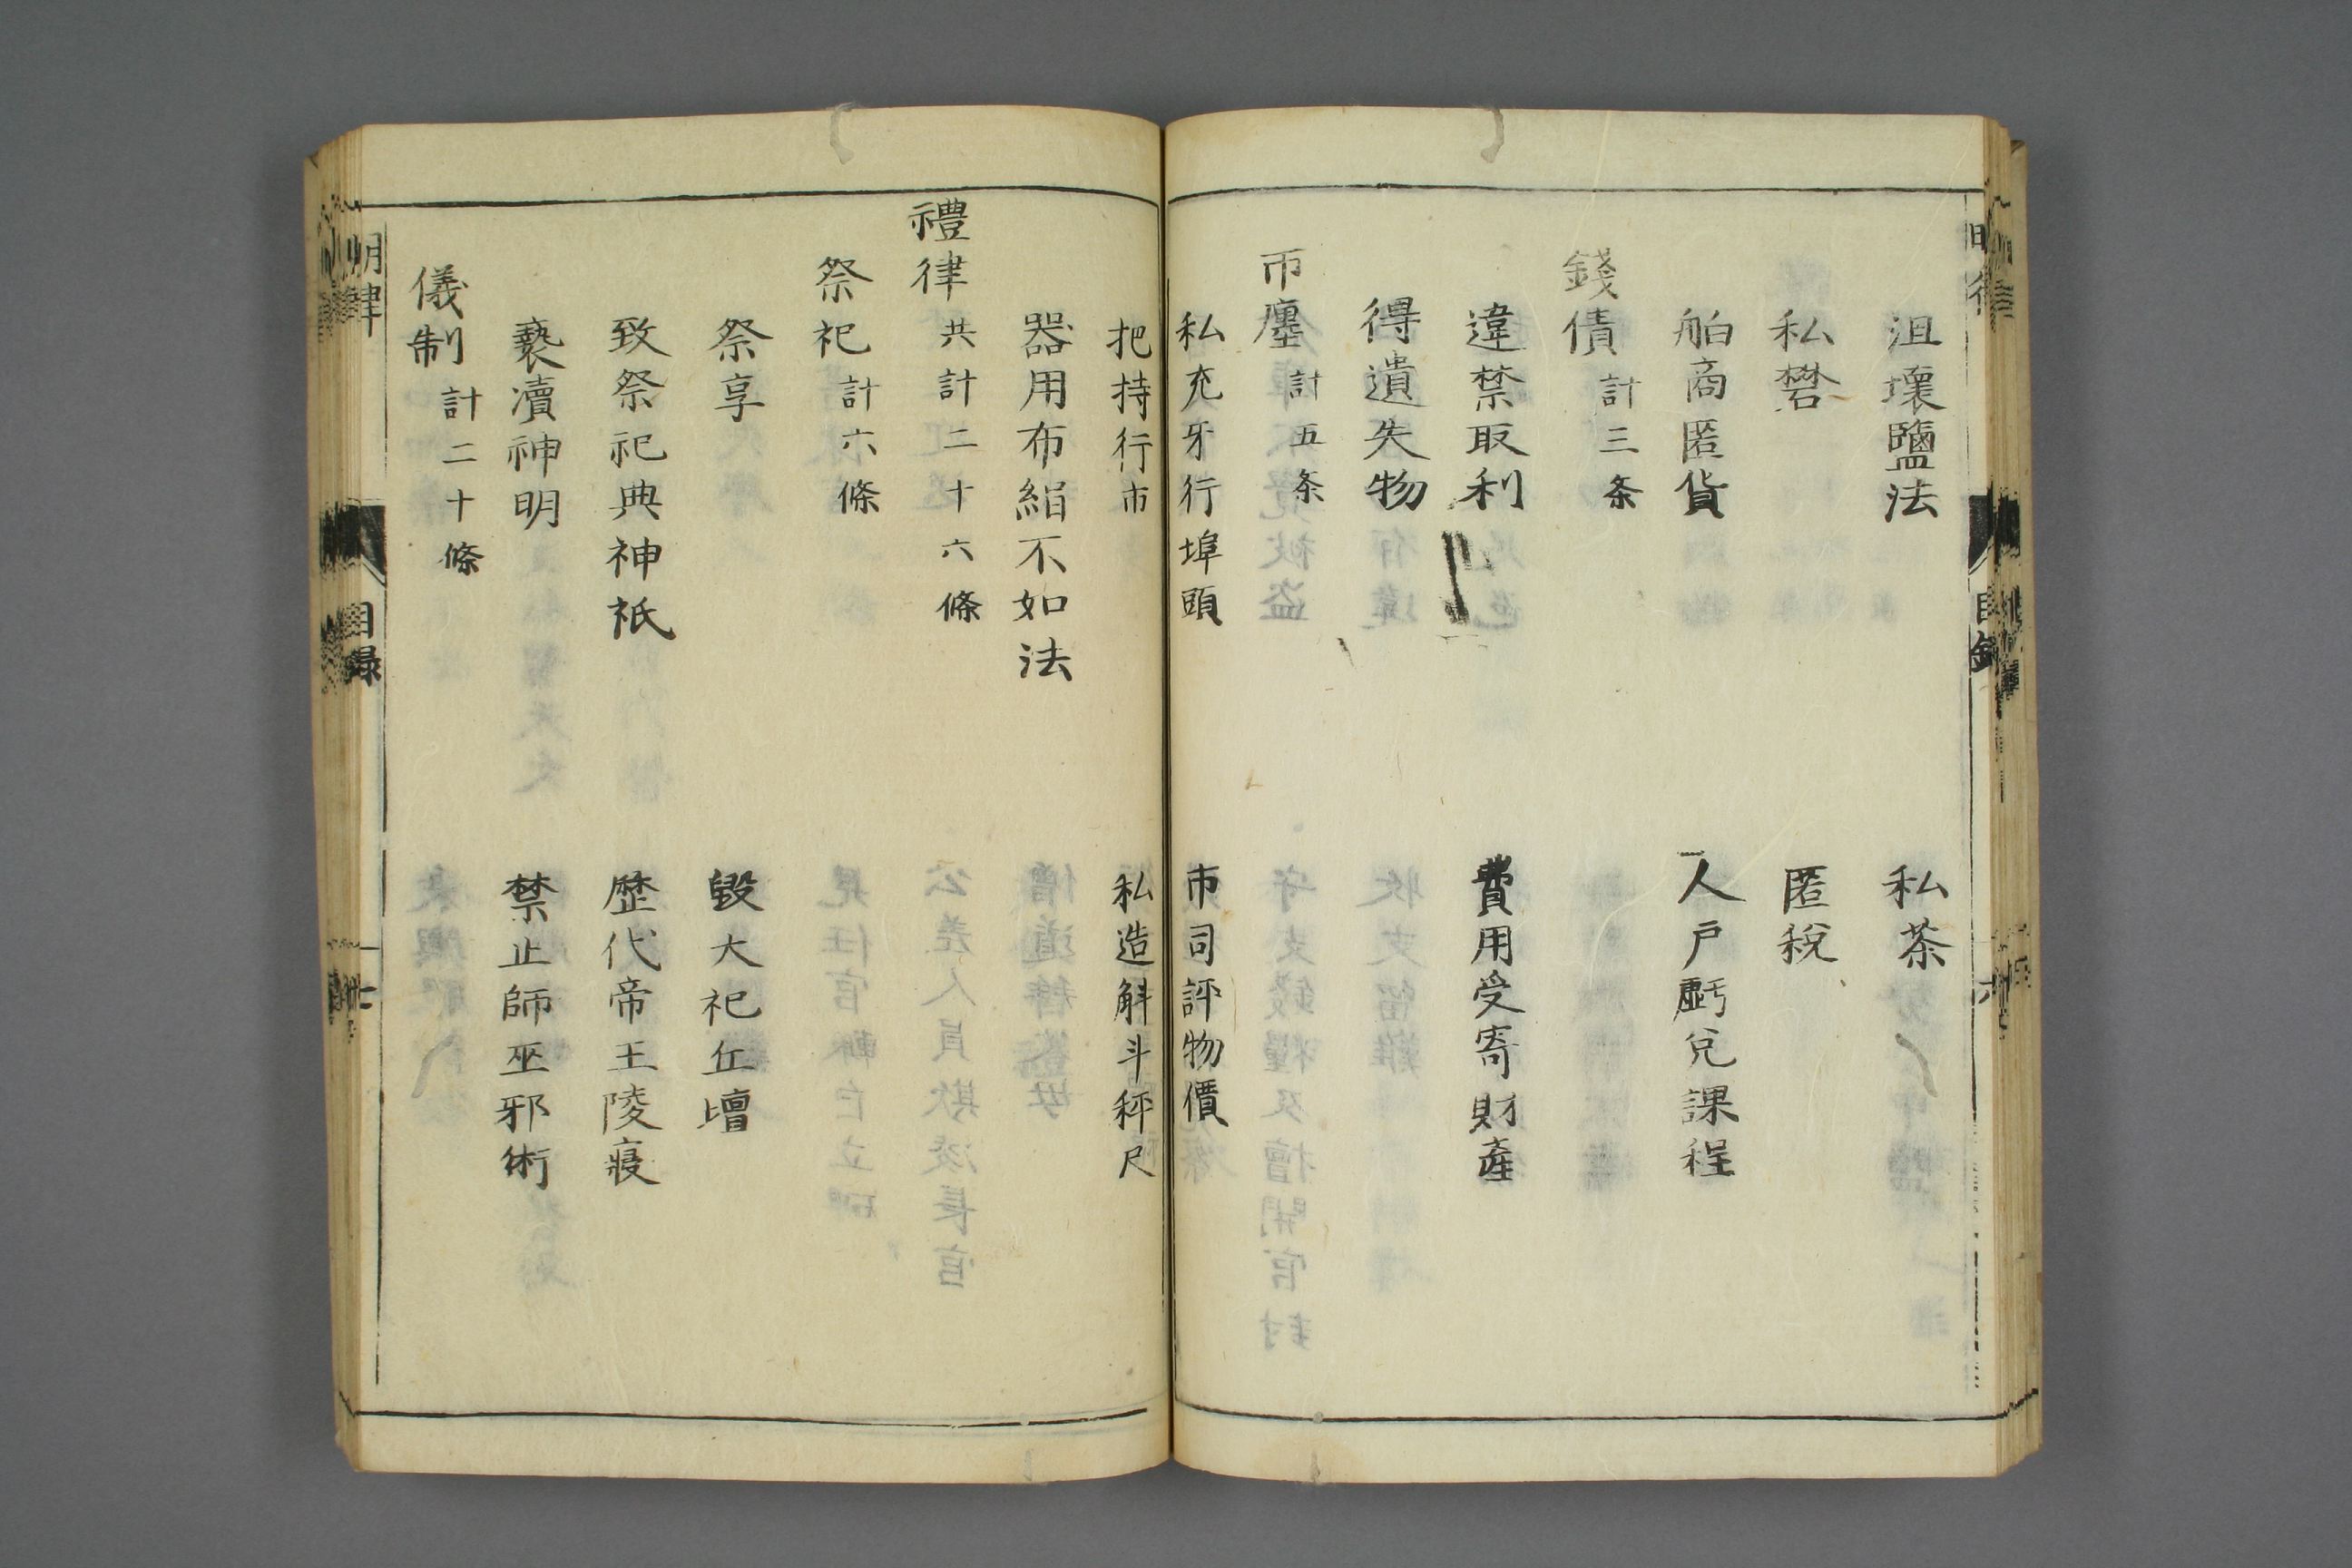 沮壞鹽法　私茶
私礬　匿稅
舶商匿貨　人戶虧兌課程
錢債計三条
違禁取利　費用受寄財產
得遺失物
市廛計五条
私充牙行埠頭　市司評物價
把持行市　私造斛斗秤尺
器用布絹不如法
禮律共計二十六條
祭祀計六條
祭享　毀大祀丘壇
致祭祀典神祇　歷代帝王陵寢
褻瀆神明　禁止師巫邪術
儀制計二十條
明律　目録